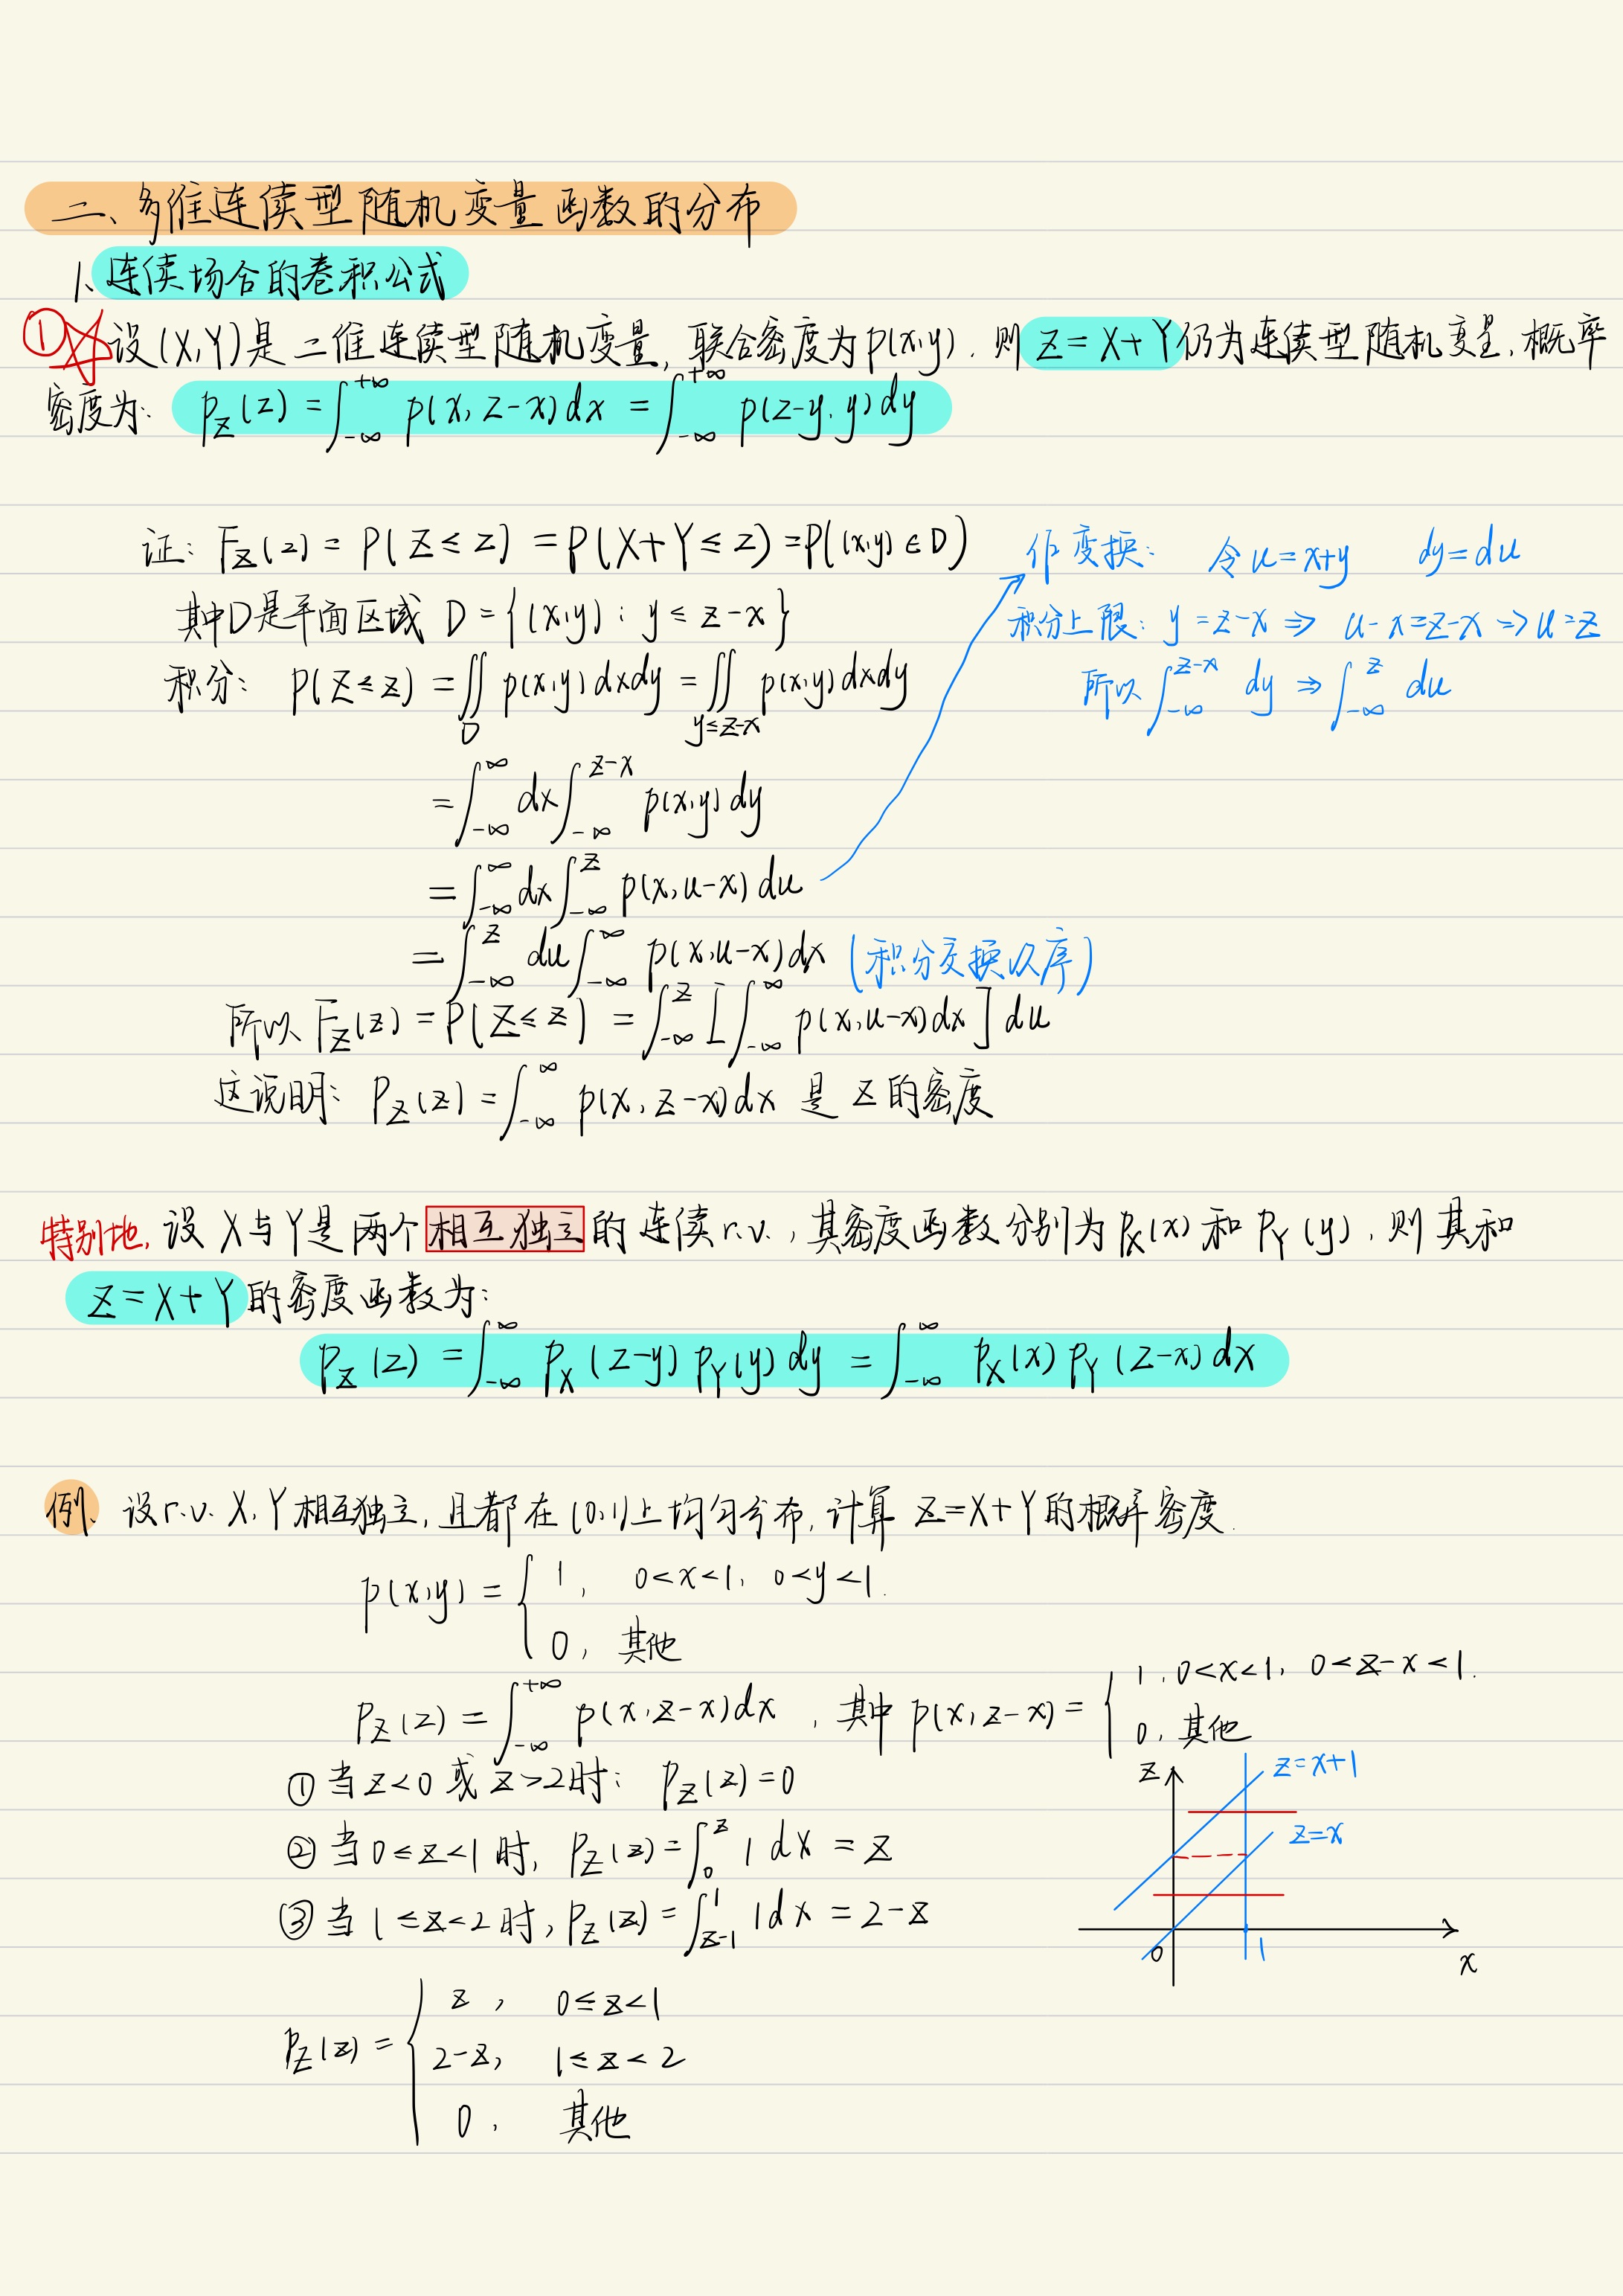 二、多维连续型随机变量函数的分布
1、连续场合的卷积公式
①☆设(X,Y)是二维连续型随机变量,联合密度为p(x,y),则Z=X+Y仍为连续型随机变量,概率
密度为: p_Z(z) = ∫_{-∞}^{+∞} p(x, z-x)dx = ∫_{-∞}^{+∞} p(z-y, y)dy
证: F_Z(z) = P(Z≤z) = P(X+Y≤z) = P((x,y)∈D)
作变换: 令u=x+y dy=du
其中D是平面区域 D={(x,y): y≤z-x}
积分上限: y=z-x ⇒ u-x=z-x ⇒ u=z
积分: P(Z≤z) = ∬_D p(x,y)dxdy = ∬_{y≤z-x} p(x,y)dxdy
所以 ∫_{-∞}^{z-x} dy ⇒ ∫_{-∞}^{z} du
= ∫_{-∞}^{∞} dx ∫_{-∞}^{z-x} p(x,y)dy
= ∫_{-∞}^{∞} dx ∫_{-∞}^{z} p(x,u-x)du
= ∫_{-∞}^{z} du ∫_{-∞}^{∞} p(x,u-x)dx (积分交换次序)
所以 F_Z(z) = P(Z≤z) = ∫_{-∞}^{z} [∫_{-∞}^{∞} p(x,u-x)dx] du
这说明: p_Z(z) = ∫_{-∞}^{∞} p(x, z-x)dx 是 Z 的密度
特别地, 设 X与Y是两个相互独立的连续r.v., 其密度函数分别为 p_X(x) 和 p_Y(y), 则其和
Z=X+Y的密度函数为:
p_Z(z) = ∫_{-∞}^{∞} p_X(z-y)p_Y(y)dy = ∫_{-∞}^{∞} p_X(x)p_Y(z-x)dx
例、设r.v. X,Y相互独立, 且都在(0,1)上均匀分布, 计算 Z=X+Y的概率密度.
p(x,y) = { 1, 0<x<1, 0<y<1.
0, 其他
p_Z(z) = ∫_{-∞}^{+∞} p(x,z-x)dx, 其中 p(x,z-x) = { 1, 0<x<1, 0<z-x<1.
0, 其他
①当z<0或z>2时: p_Z(z)=0
②当0≤z<1时, p_Z(z) = ∫_0^z 1dx = z
③当1≤z<2时, p_Z(z) = ∫_{z-1}^1 1dx = 2-z
z
z=x+1
z=x
0
1
x
p_Z(z) = { z, 0≤z<1
2-z, 1≤z<2
0, 其他